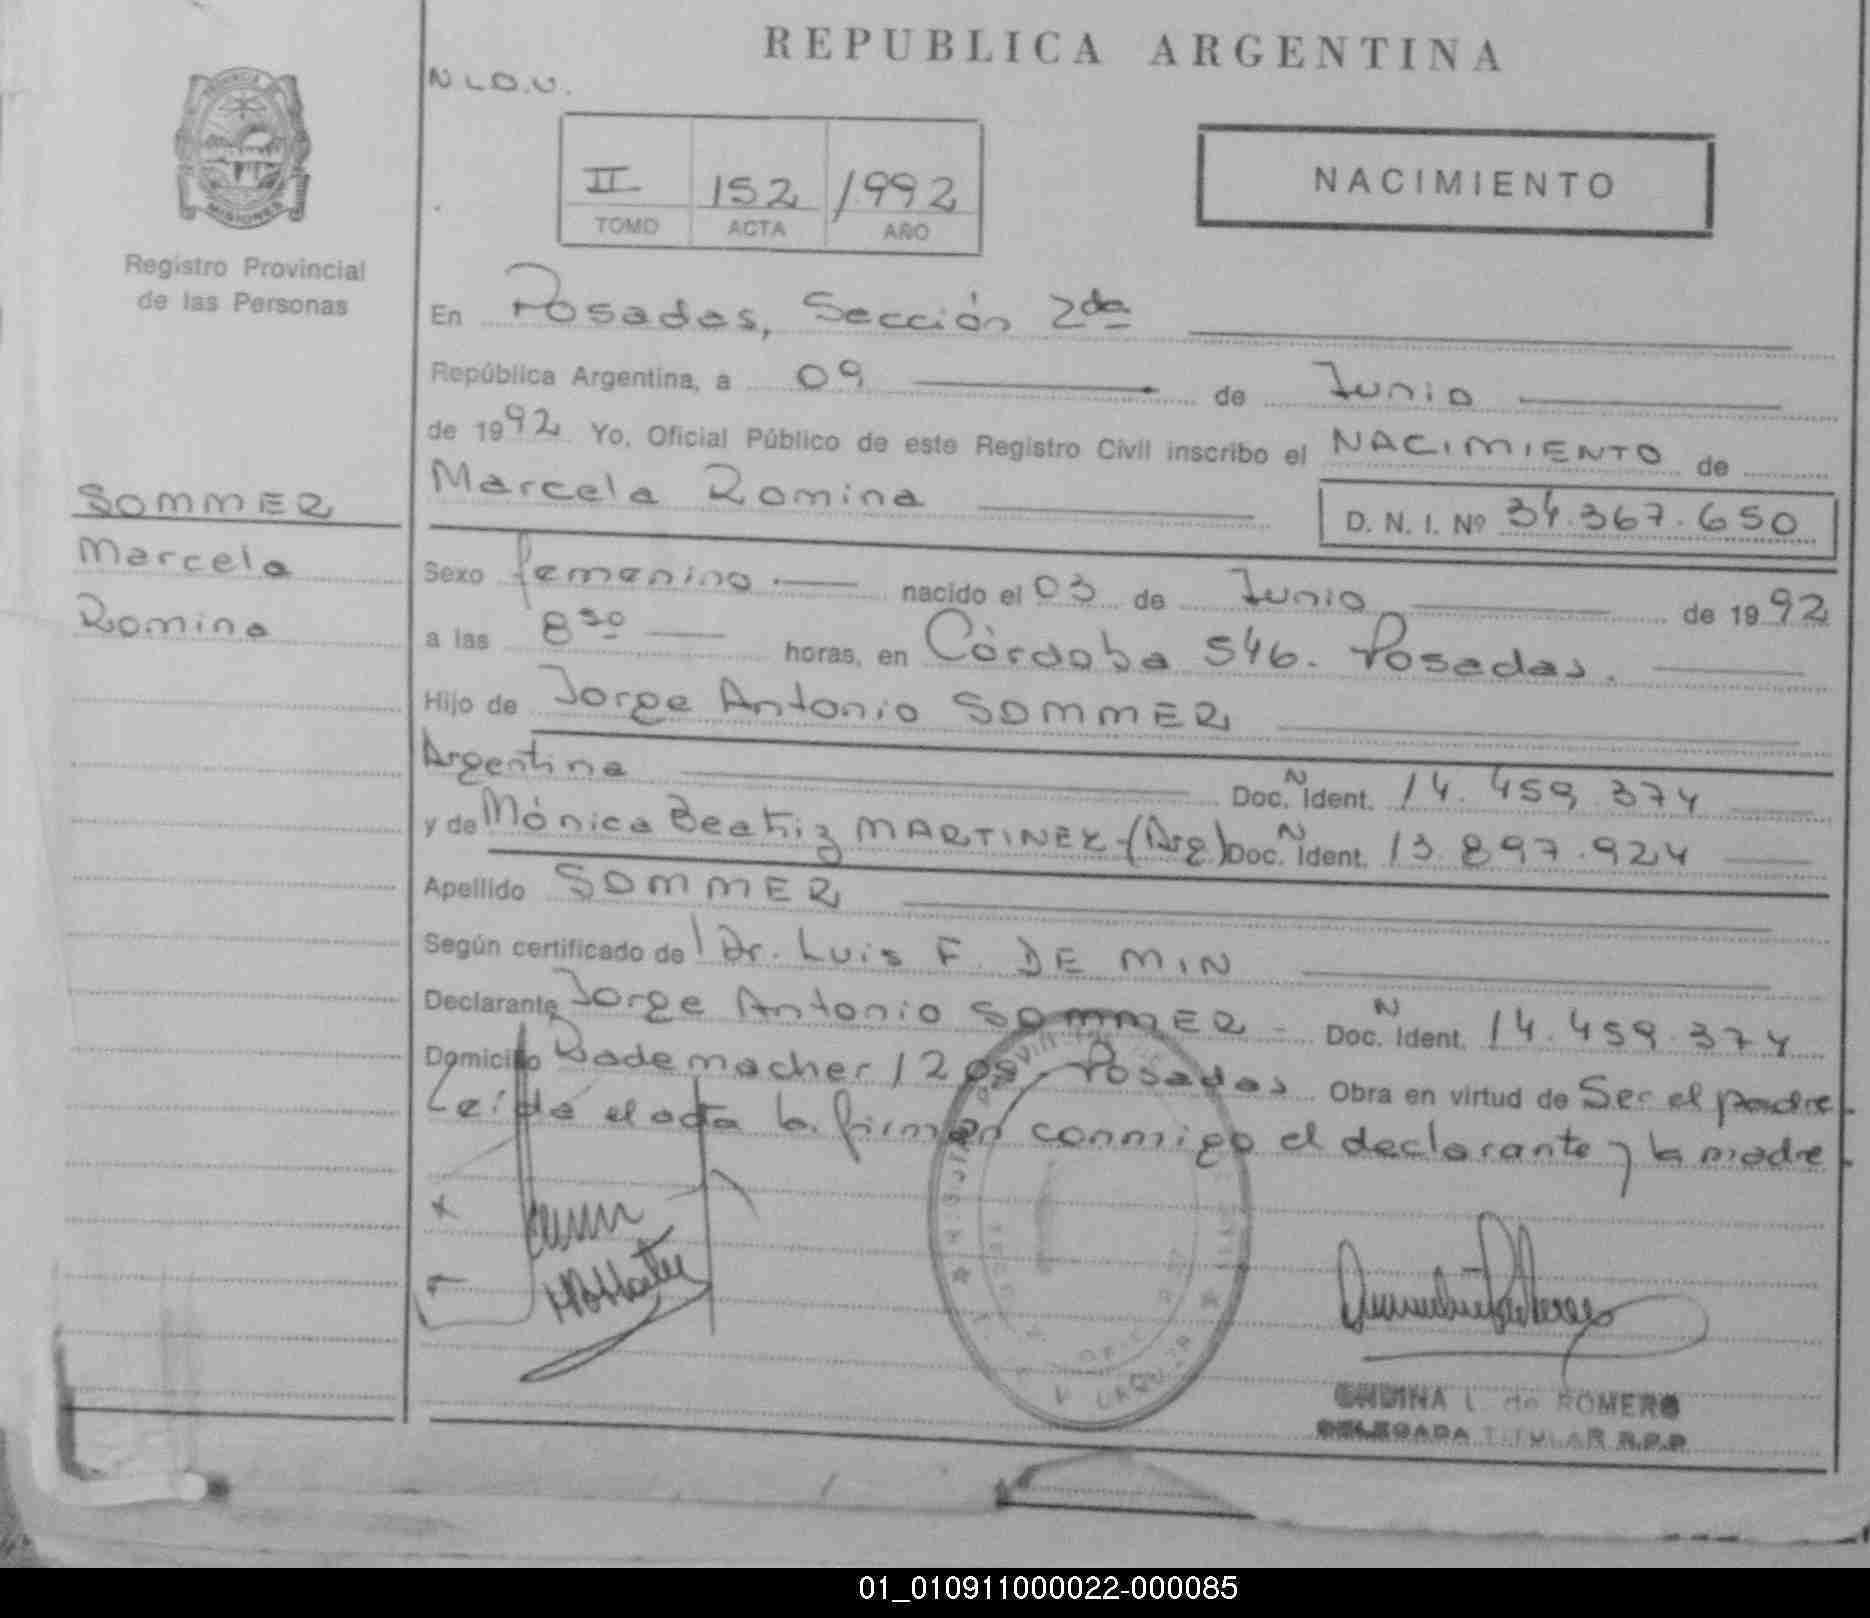 REPUBLICA ARGENTINA
N.L.O.U.
MISIONES
II 152 1992
TOMO ACTA AÑO
NACIMIENTO
Registro Provincial
de las Personas
En Posadas, Sección 2da
República Argentina, a 09 de Junio
de 1992 Yo, Oficial Público de este Registro Civil inscribo el NACIMIENTO de
Marcela Romina D. N. I. Nº 34.367.650
SOMMER
Marcela
Romina
Sexo femenino nacido el 03 de Junio de 1992
a las 8 30 horas, en Córdoba 546. Posadas.
Hijo de Jorge Antonio SOMMER
Argentina Doc. N Ident. 14.459.374
y de Mónica Beatriz MARTINEZ-(Arg) Doc. N Ident. 13.897.924
Apellido SOMMER
Según certificado de l Dr. Luis F. DE MIN
Declarante Jorge Antonio SOMMER - Doc. N Ident. 14.459.374
Domicilio Rademacher 1208 - Posadas Obra en virtud de Ser el padre.
Leída el acta la firman conmigo el declarante y la madre.
L. de ROMERO
DELEGADA TITULAR R.P.P
01_010911000022-000085